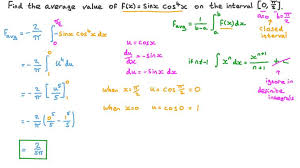 Find the average value of F(x)= sinx cos⁴x on the interval [0, π/2].
F avg = 2/π ∫₀^(π/2) sinx cos⁴x dx
= -2/π ∫₁⁰ u⁴ du
= -2/π [u⁵/5]₁⁰
= -2/π (0⁵/5 - 1⁵/5)
= 2/5π
u = cosx
du/dx = -sinx
du = -sinx dx
when x = π/2 u = cos π/2 = 0
when x=0 u = cos0 = 1
F avg = 1/(b-a) ∫ₐᵇ F(x) dx
a=0 b=π/2
closed interval
if n≠-1 ∫xⁿ dx = xⁿ⁺¹/(n+1) + C
ignore in definite integrals